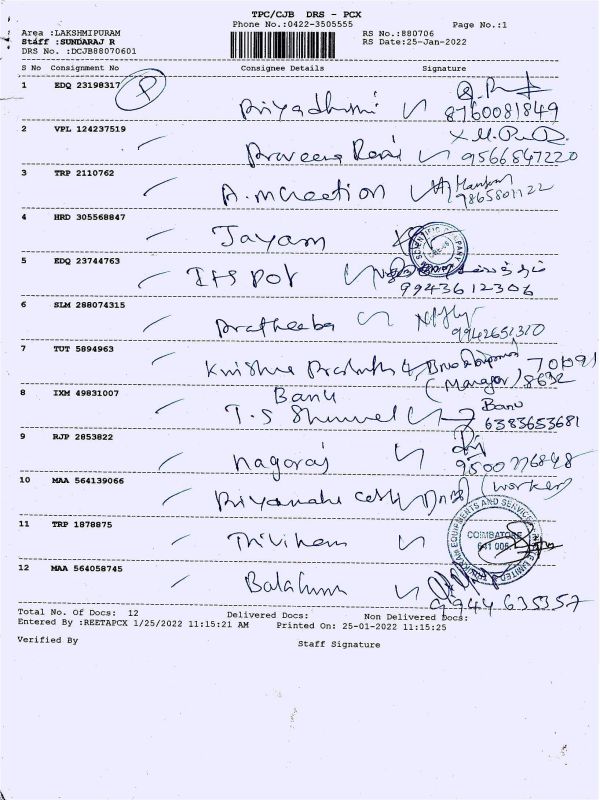 TPC/CJB DRS - PCX
Phone No.:0422-3505555 Page No.:1
Area :LAKSHMIPURAM RS No.:880706
Staff :SUNDARAJ R RS Date:25-Jan-2022
DRS No. :DCJB88070601
S No Consignment No Consignee Details Signature
1 EDQ 23198317 P
Priyadharsini 8760081849
2 VPL 124237519
Praveena Rani 9566847220
3 TRP 2110762
A.m Creation 9865801122
4 HRD 305568847
Jayam
5 EDQ 23744763
9943612306
6 SLM 288074315
Pratheeba 9942651310
7 TUT 5894963
Krishna (Manager) 8632
8 IXM 49831007
Banu Banu
T.S 6383653681
9 RJP 2853822
Nagoraj 9500776848
10 MAA 564139066
(worker)
11 TRP 1878875
COIMBATORE
641 006
12 MAA 564058745
9944635357
Total No. Of Docs: 12 Delivered Docs: Non Delivered Docs:
Entered By :REETAPCX 1/25/2022 11:15:21 AM Printed On: 25-01-2022 11:15:25
Verified By Staff Signature